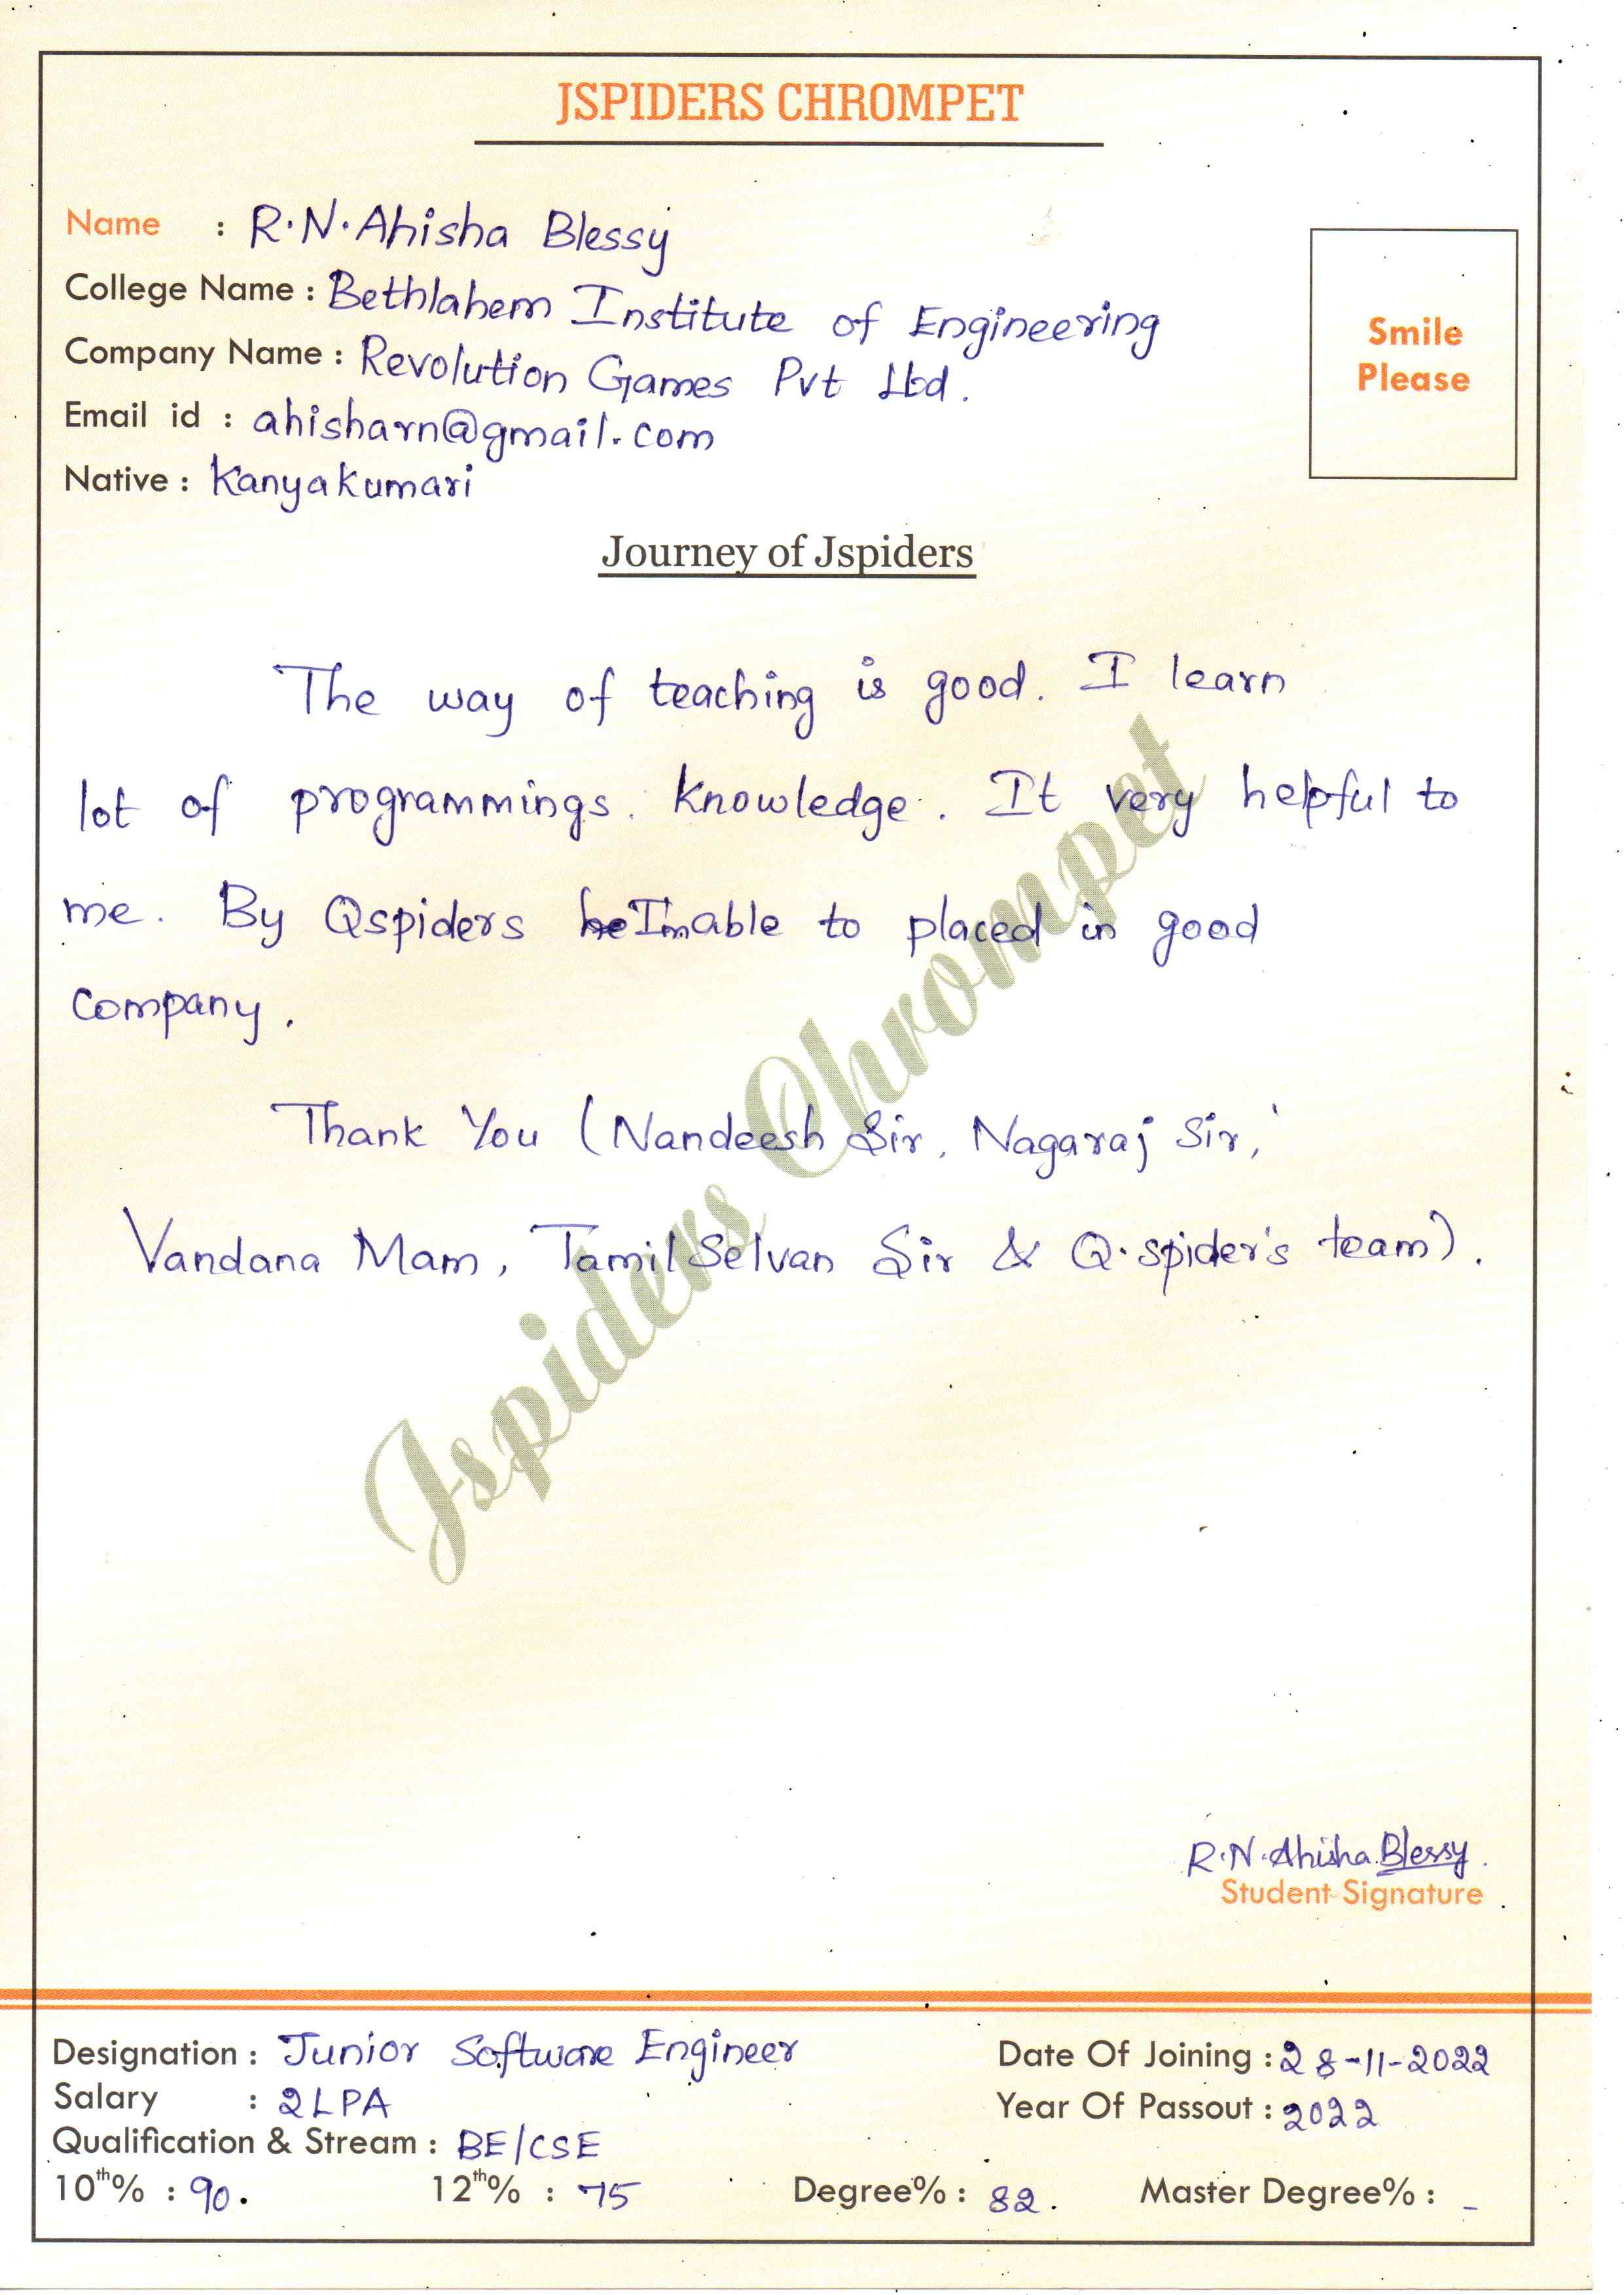 JSPIDERS CHROMPET
Name : R.N.Ahisha Blessy
College Name : Bethlahem Institute of Engineering
Company Name : Revolution Games Pvt Ltd.
Email id : ahisharn@gmail.com
Native : Kanyakumari
Smile
Please
Journey of Jspiders
The way of teaching is good. I learn
lot of programmings knowledge. It very helpful to
me. By Qspiders I'm able to placed in good
company.
Thank You (Nandeesh Sir, Nagaraj Sir,
Vandana Mam, TamilSelvan Sir & Q.spider's team).
Jspiders Chrompet
R.N.Ahisha Blessy.
Student Signature
Designation : Junior Software Engineer Date Of Joining : 28-11-2022
Salary : 2LPA Year Of Passout : 2022
Qualification & Stream : BE/CSE
10th% : 90. 12th% : 75 Degree% : 82. Master Degree% : -